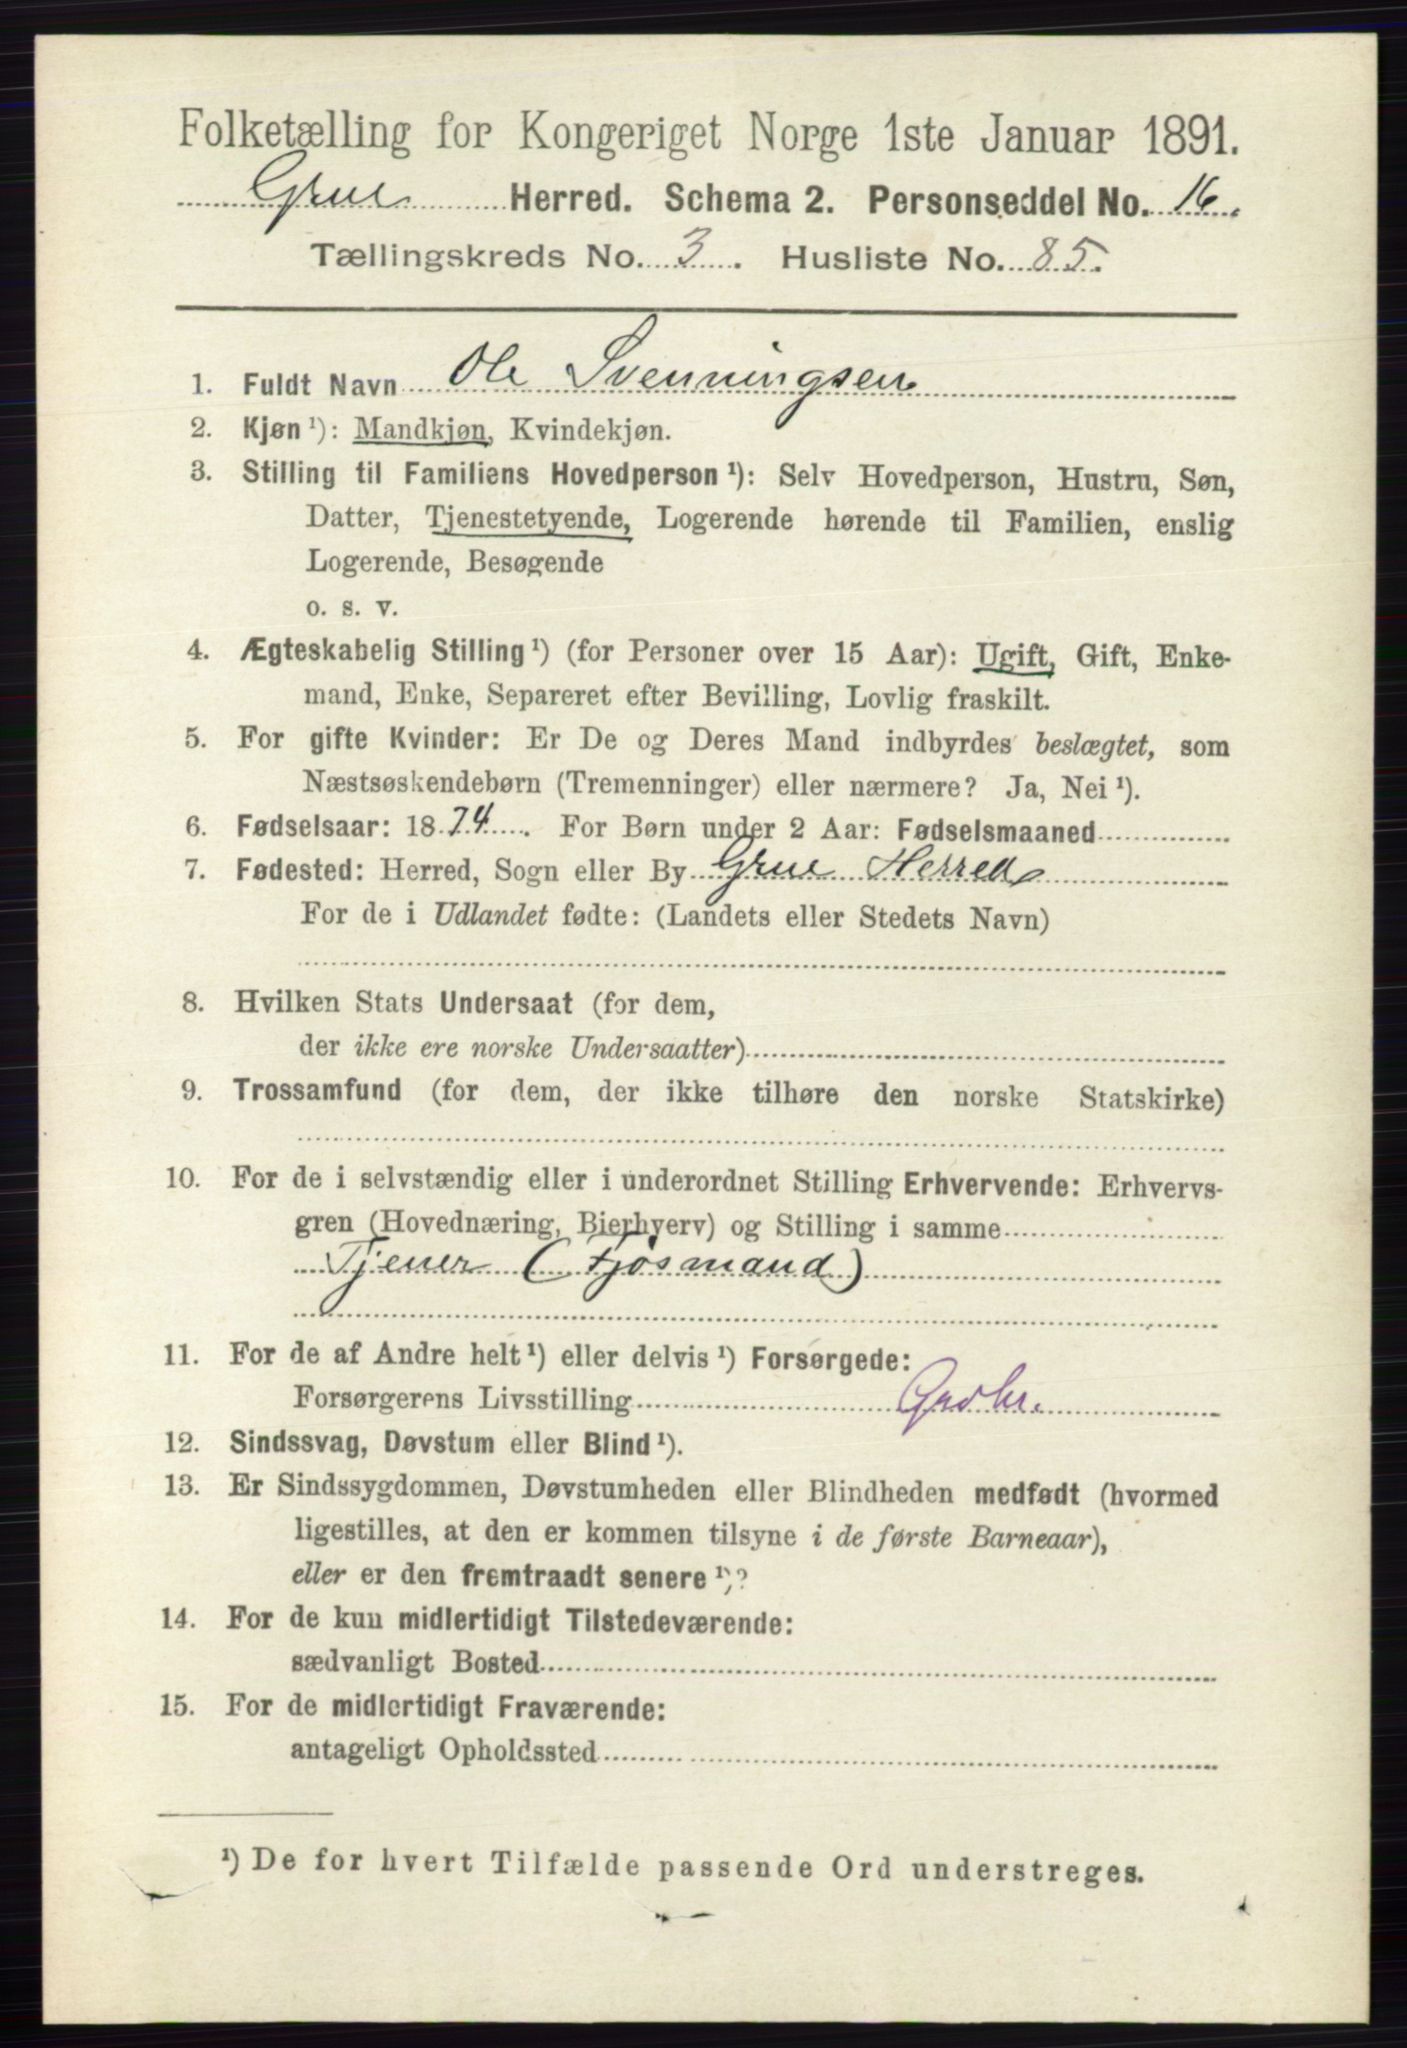 Folketælling for Kongeriget Norge 1ste Januar 1891.
Grue Herred. Schema 2. Personseddel No. 16.
Tællingskreds No. 3. Husliste No. 85.
1. Fuldt Navn Ole Svenningsen
2. Kjøn ¹): Mandkjøn, Kvindekjøn.
3. Stilling til Familiens Hovedperson ¹): Selv Hovedperson, Hustru, Søn,
Datter, Tjenestetyende, Logerende hørende til Familien, enslig
Logerende, Besøgende
o. s. v.
4. Ægteskabelig Stilling ¹) (for Personer over 15 Aar): Ugift, Gift, Enke-
mand, Enke, Separeret efter Bevilling, Lovlig fraskilt.
5. For gifte Kvinder: Er De og Deres Mand indbyrdes beslægtet, som
Næstsøskendebørn (Tremenninger) eller nærmere? Ja, Nei ¹).
6. Fødselsaar: 1874. For Børn under 2 Aar: Fødselsmaaned
7. Fødested: Herred, Sogn eller By Grue Herred
For de i Udlandet fødte: (Landets eller Stedets Navn)
8. Hvilken Stats Undersaat (for dem,
der ikke ere norske Undersaatter)
9. Trossamfund (for dem, der ikke tilhøre den norske Statskirke)
10. For de i selvstændig eller i underordnet Stilling Erhvervende: Erhvervs-
gren (Hovednæring, Bierhverv) og Stilling i samme
Tjener (Fjøsmand)
11. For de af Andre helt ¹) eller delvis ¹) Forsørgede:
Forsørgerens Livsstilling Gadbr.
12. Sindssvag, Døvstum eller Blind ¹).
13. Er Sindssygdommen, Døvstumheden eller Blindheden medfødt (hvormed
ligestilles, at den er kommen tilsyne i de første Barneaar),
eller er den fremtraadt senere ¹)?
14. For de kun midlertidigt Tilstedeværende:
sædvanligt Bosted
15. For de midlertidigt Fraværende:
antageligt Opholdssted
¹) De for hvert Tilfælde passende Ord understreges.